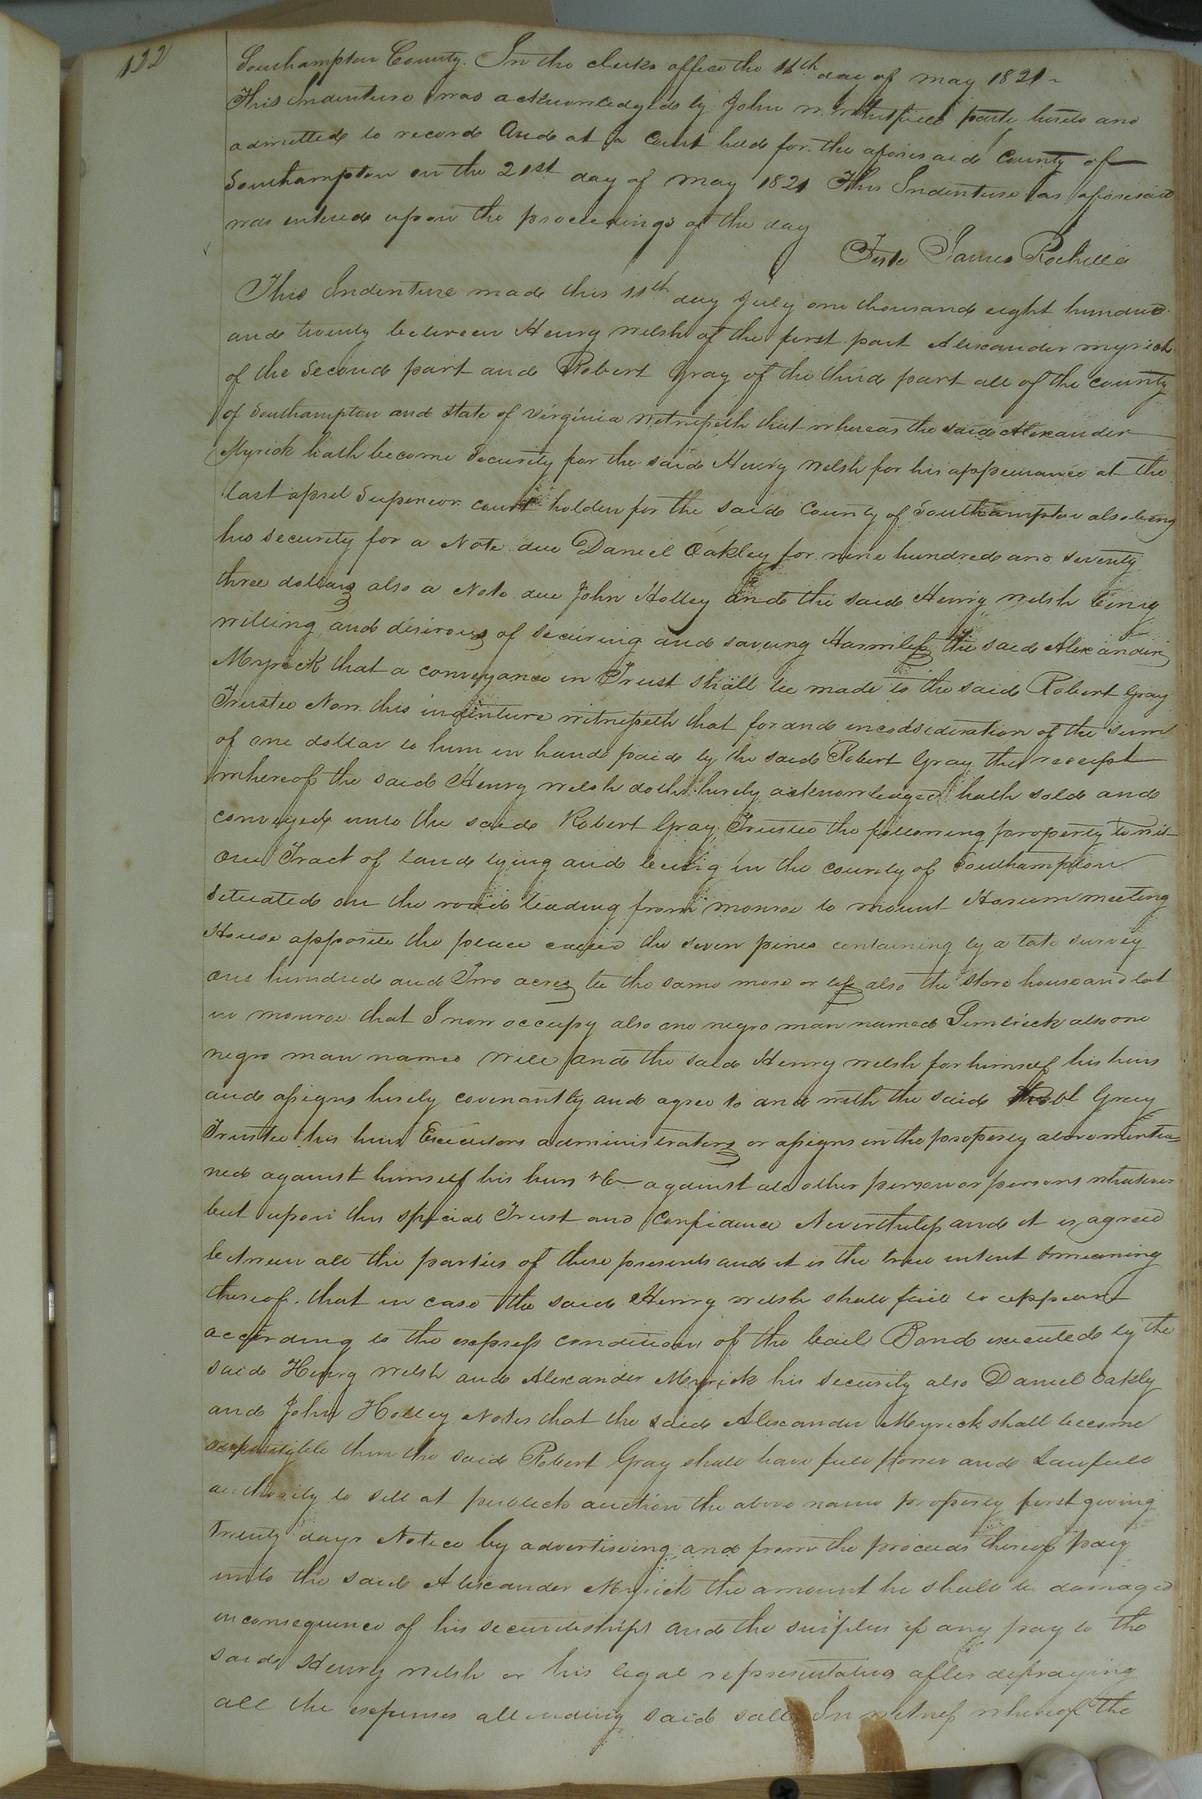 122
Southampton County. In the clerks office the 11th day of may 1821
This Indenture was acknowledged by John W. Whitfield party hereto and
admitted to record And at a Court held for the aforesaid County of
Southampton on the 21st day of may 1821 This Indenture as aforesaid
was entered upon the proceedings of the day
Teste James Rochelle
This Indenture made this 11th day July one thousand eight hundred
and twenty between Henry Welsh of the first part Alexander myrick
of the Second part and Robert Gray of the third part all of the county
of Southampton and State of Virginia witnesseth that whereas the said Alexander
Myrick hath become Security for the said Henry Welsh for his appearance at the
last april Superior court holden for the said County of Southampton also being
his security for a Note due Daniel Oakley for nine hundred and seventy
three dollars also a Note due John Holley and the said Henry Welsh being
willing and desirous of securing and saveing Harmless the said Alexander
Myrick that a conveyance in Trust shall be made to the said Robert Gray
Trustee Now this indenture witnesseth that for and in consideration of the sum
of one dollar to him in hand paid by the said Robert Gray the receipt
whereof the said Henry Welsh doth hereby acknowledged hath sold and
conveyed unto the said Robert Gray Trustee the following property towit
One Tract of land lying and being in the county of Southampton
Situated on the road leading from monroe to mount Horum meeting
House opposite the place called the seven pines containing by a late survey
one hundred and Two acres be the same more or less also the Store house and lot
in monroe that I now occupy also one negro man named Limbrick also one
negro man named Will and the said Henry Welsh for himself his heirs
and assigns hereby covenantly and agree to and with the said Robt Gray
Trustee his heirs Executors administrators or assigns in the property above mentio=
ned against himself his heirs &c against all other person or persons whatever
but upon this special Trust and Confidence Nevertheless and it is agreed
between all the parties of these presents and it is the true intent & meaning
thereof. that in case the said Henry Welsh shall fail to appear
according to the express conditions of the bail Bond executed by the
said Henry Welsh and Alexander Myrick his Security also Daniel Oakley
and John Holley Notes that the said Alexander Myrick shall become
responsible then the said Robert Gray shall have full power and Lawfull
authority to sell at publick auction the above name property first giving
twenty days Notice by advertiseing and from the proceeds thereof pay
unto the said Alexander Myrick the amount he shall be damaged
in consequence of his securityships and the surplus if any pay to the
said Henry Welsh or his legal representatives after defraying
all the expenses attending said sale In witness whereof the